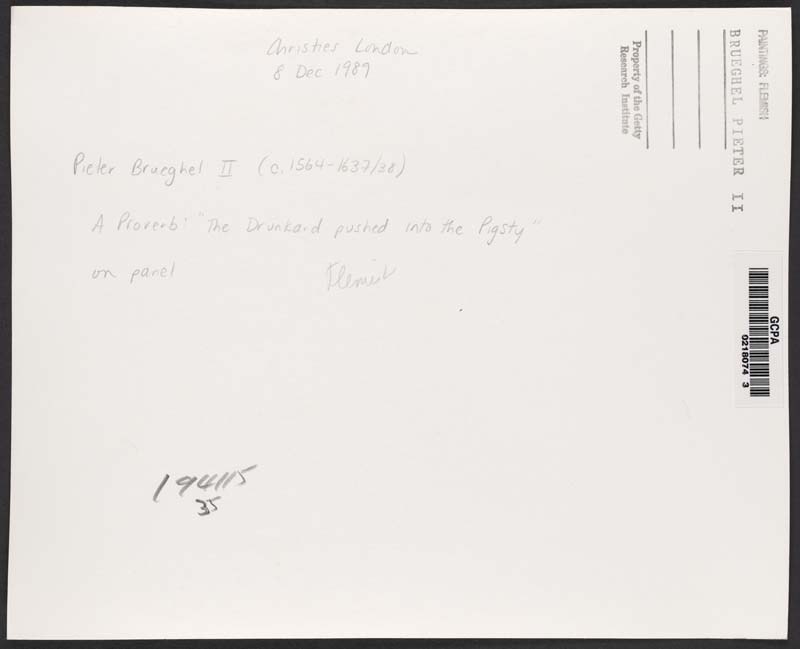 Christies London
8 Dec 1989
Pieter Brueghel II (c.1564-1637/38)
A Proverb: "The Drunkard pushed into the Pigsty"
on panel
Flemish
194115
35
PAINTINGS: FLEMISH
BRUEGHEL PIETER II
Property of the Getty
Research Institute
GCPA
0218074 3